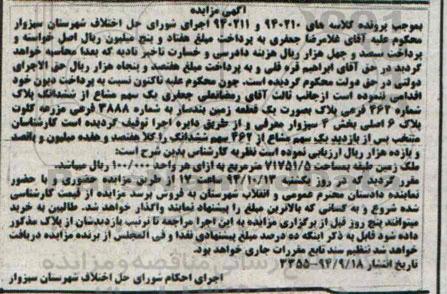 آگهی مزایده
بموجب پرونده کلاسه های ۹۴۰۲۱۰ و ۹۴۰۲۱۱ اجرای شورای حل اختلاف شهرستان سبزوار
محکوم علیه آقای غلامرضا جعفری به پرداخت مبلغ هفتاد و پنج میلیون ریال اصل خواسته و
پرداخت و چهل هزار ریال هزینه دادرسی و خسارت تاخیر تادیه که بعدا محاسبه خواهد
گردید در حق آقای ابراهیم قره قلی و به پرداخت مبلغ هفتصد و پنجاه هزار ریال حق الاجرای
دولتی در حق دولت محکوم گردیده است. چون محکوم علیه تاکنون نسبت به پرداخت دیون خود
اقدامی ننموده است ازجانب ثالث آقای رضانعلی جعفری یک سهم مشاع از ششدانگ پلاک
شماره ۴۶۲ فرعی پلاک بصورت یک قطعه زمین محصار به شماره ۳۸۸۸ فرعی مزرعه کلوت
پلاک ۶ اصلی بخش ۳ سبزوار معرفی و از طریق دایره اجرا توقیف گردیده است کارشناسان
منتخب پس از بازدید یک سهم مشاع از ۴۶۲ سهم ششدانگ را کلا هفتصد و هفده میلیون و پانصد
و یازده هزار ریال ارزیابی نموده است نظریه کارشناس بدین شرح است:
ملک زمین خالی بمساحت ۷۱۷۵۱/۵ مترمربع به ازای هر واحد ۱۰۰/۰۰۰ ریال میباشد.
مقرر گردید که در روز یکشنبه ۹۴/۱۰/۱۳ ساعت ۱۷ از طریق مزایده حضوری و با حضور
نماینده دادستان محترم عمومی و انقلاب شهرستان به فروش برسد مزایده از قیمت کارشناسی
شده شروع و به کسانی که بالاترین مبلغ را پیشنهاد نمایند واگذار خواهد شد. طالبین به خرید
میتوانند پنج روز قبل از برگزاری مزایده به این اجرا مراجعه تا ترتیب بازدیدشان از پلاک مذکور
داده شود قابل به ذکر اینکه ده درصد مبلغ پیشنهادی نقدا و فی المجلس از برنده مزایده دریافت
خواهد شد تنظیم سند تابع مقررات جاری خواهد بود.
تاریخ انتشار ۹۴/۹/۱۸-۳۵۵
اجرای احکام شورای حل اختلاف شهرستان سبزوار